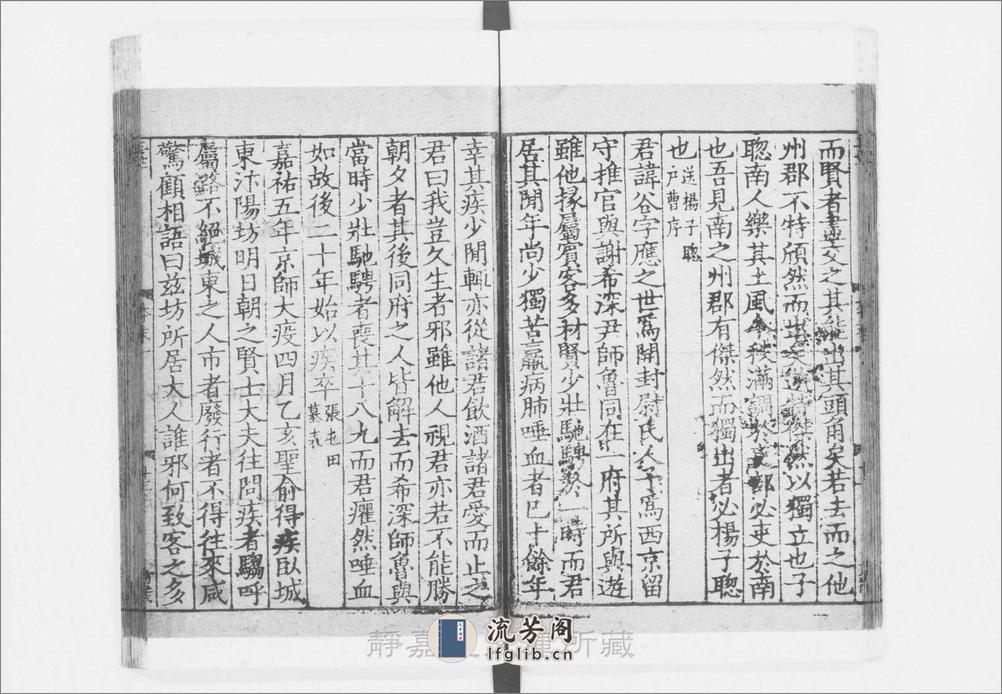 而賢者羣望之其能出其頭角矣若去而之他
州郡不特頎然而出又將傑然以獨立也子
聦南人樂其土風今秩滿調於吏部必吏於南
也吾見南之州郡有傑然而獨出者必楊子聦
也
送楊子聦
戸曹序
君諱谷字應之世爲開封尉氏人予爲西京留
守推官與謝希深尹師魯同在一府其所與遊
雖他掾屬賓客多材賢少壯馳騁於一時而君
居其閒年尚少獨苦羸病肺唾血者巳十餘年
幸其疾少閒輒亦從諸君飲酒諸君愛而止之
君曰我豈久生者邪雖他人視君亦若不能勝
朝夕者其後同府之人皆解去而希深師魯與
當時少壯馳騁者喪其十八九而君癯然唾血
如故後二十年始以疾卒
張屯田
墓表
嘉祐五年京師大疫四月乙亥聖俞得疾臥城
東汴陽坊明日朝之賢士大夫往問疾者騶呼
屬路不絕城東之人市者廢行者不得往來咸
驚顧相語曰兹坊所居大人誰邪何致客之多
静嘉
所藏
流芳阁
lfglib.cn